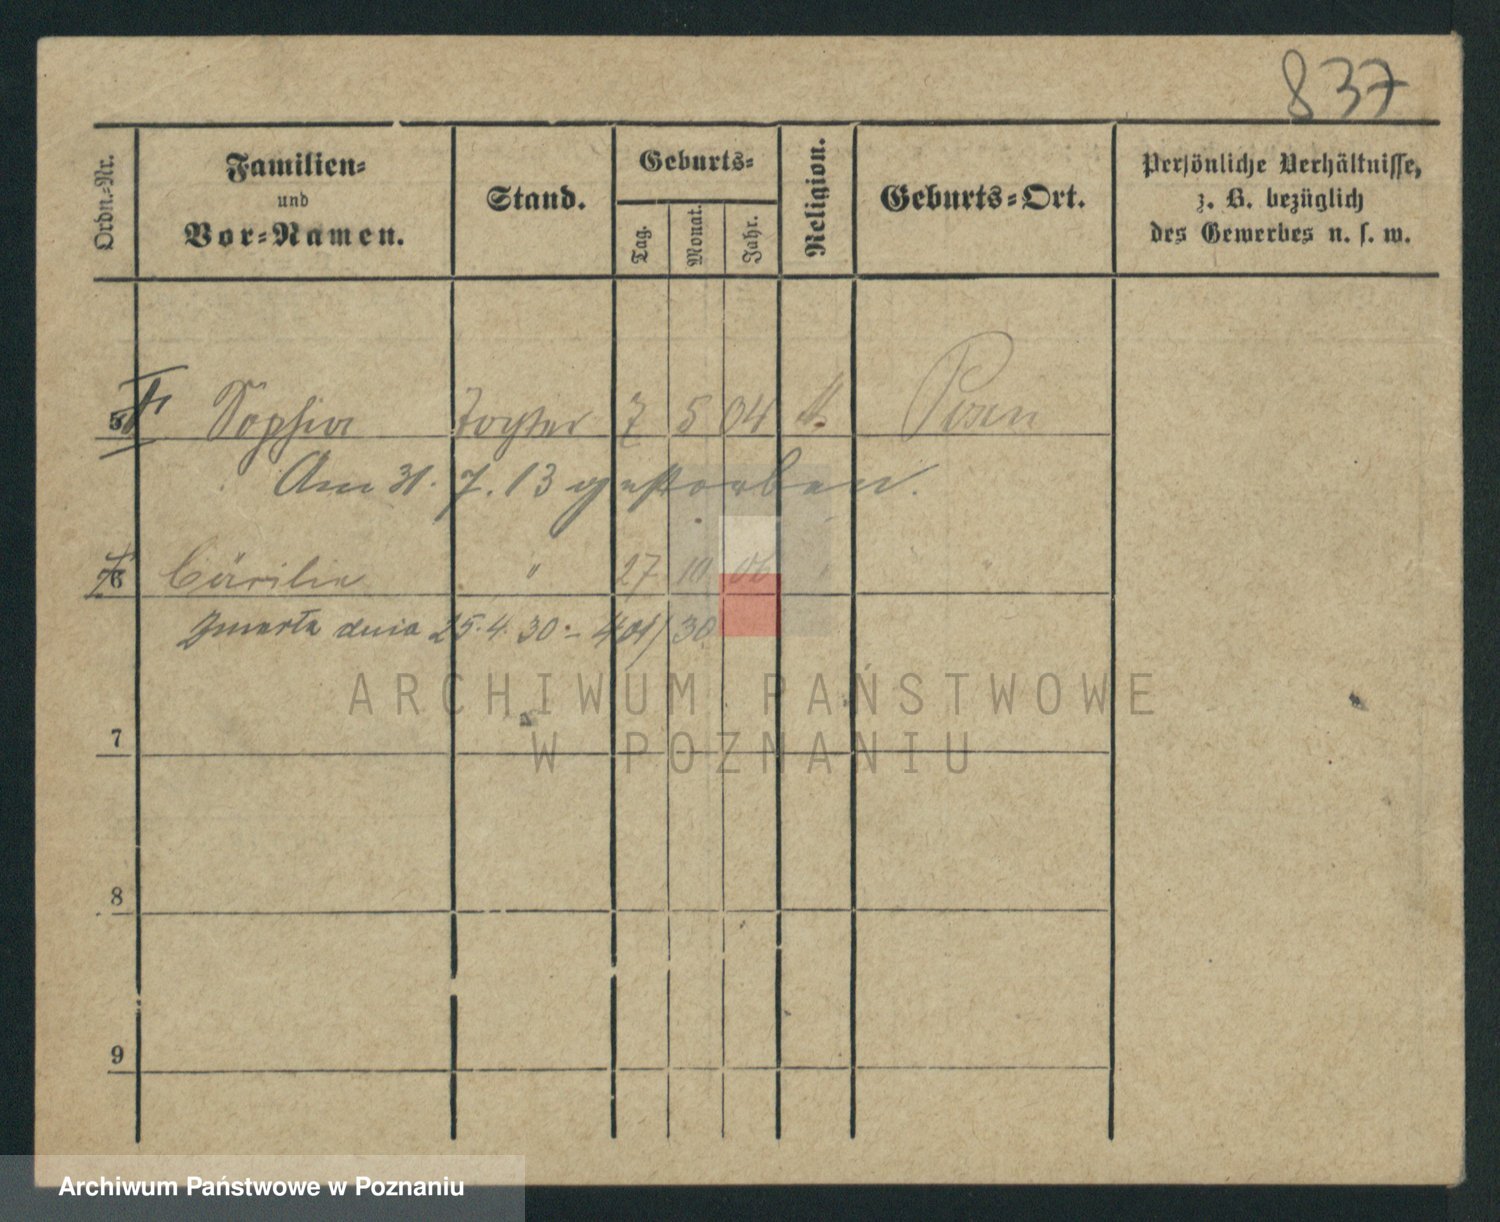 837
Ordn.-Nr.
Familien-
und
Vor-Namen.
Stand.
Geburts-
Tag.
Monat.
Jahr.
Religion.
Geburts-Ort.
Persönliche Verhältnisse,
z. B. bezüglich
des Gewerbes u. s. w.
5 Sophia Tochter 7 5 04 k. Posen
Am 31. 7. 13 gestorben.
6 Cäcilie " 27 10 06 " "
Zmarła dnia 25.4.30 – 401/30
7
8
9
ARCHIWUM PAŃSTWOWE
W POZNANIU
Archiwum Państwowe w Poznaniu